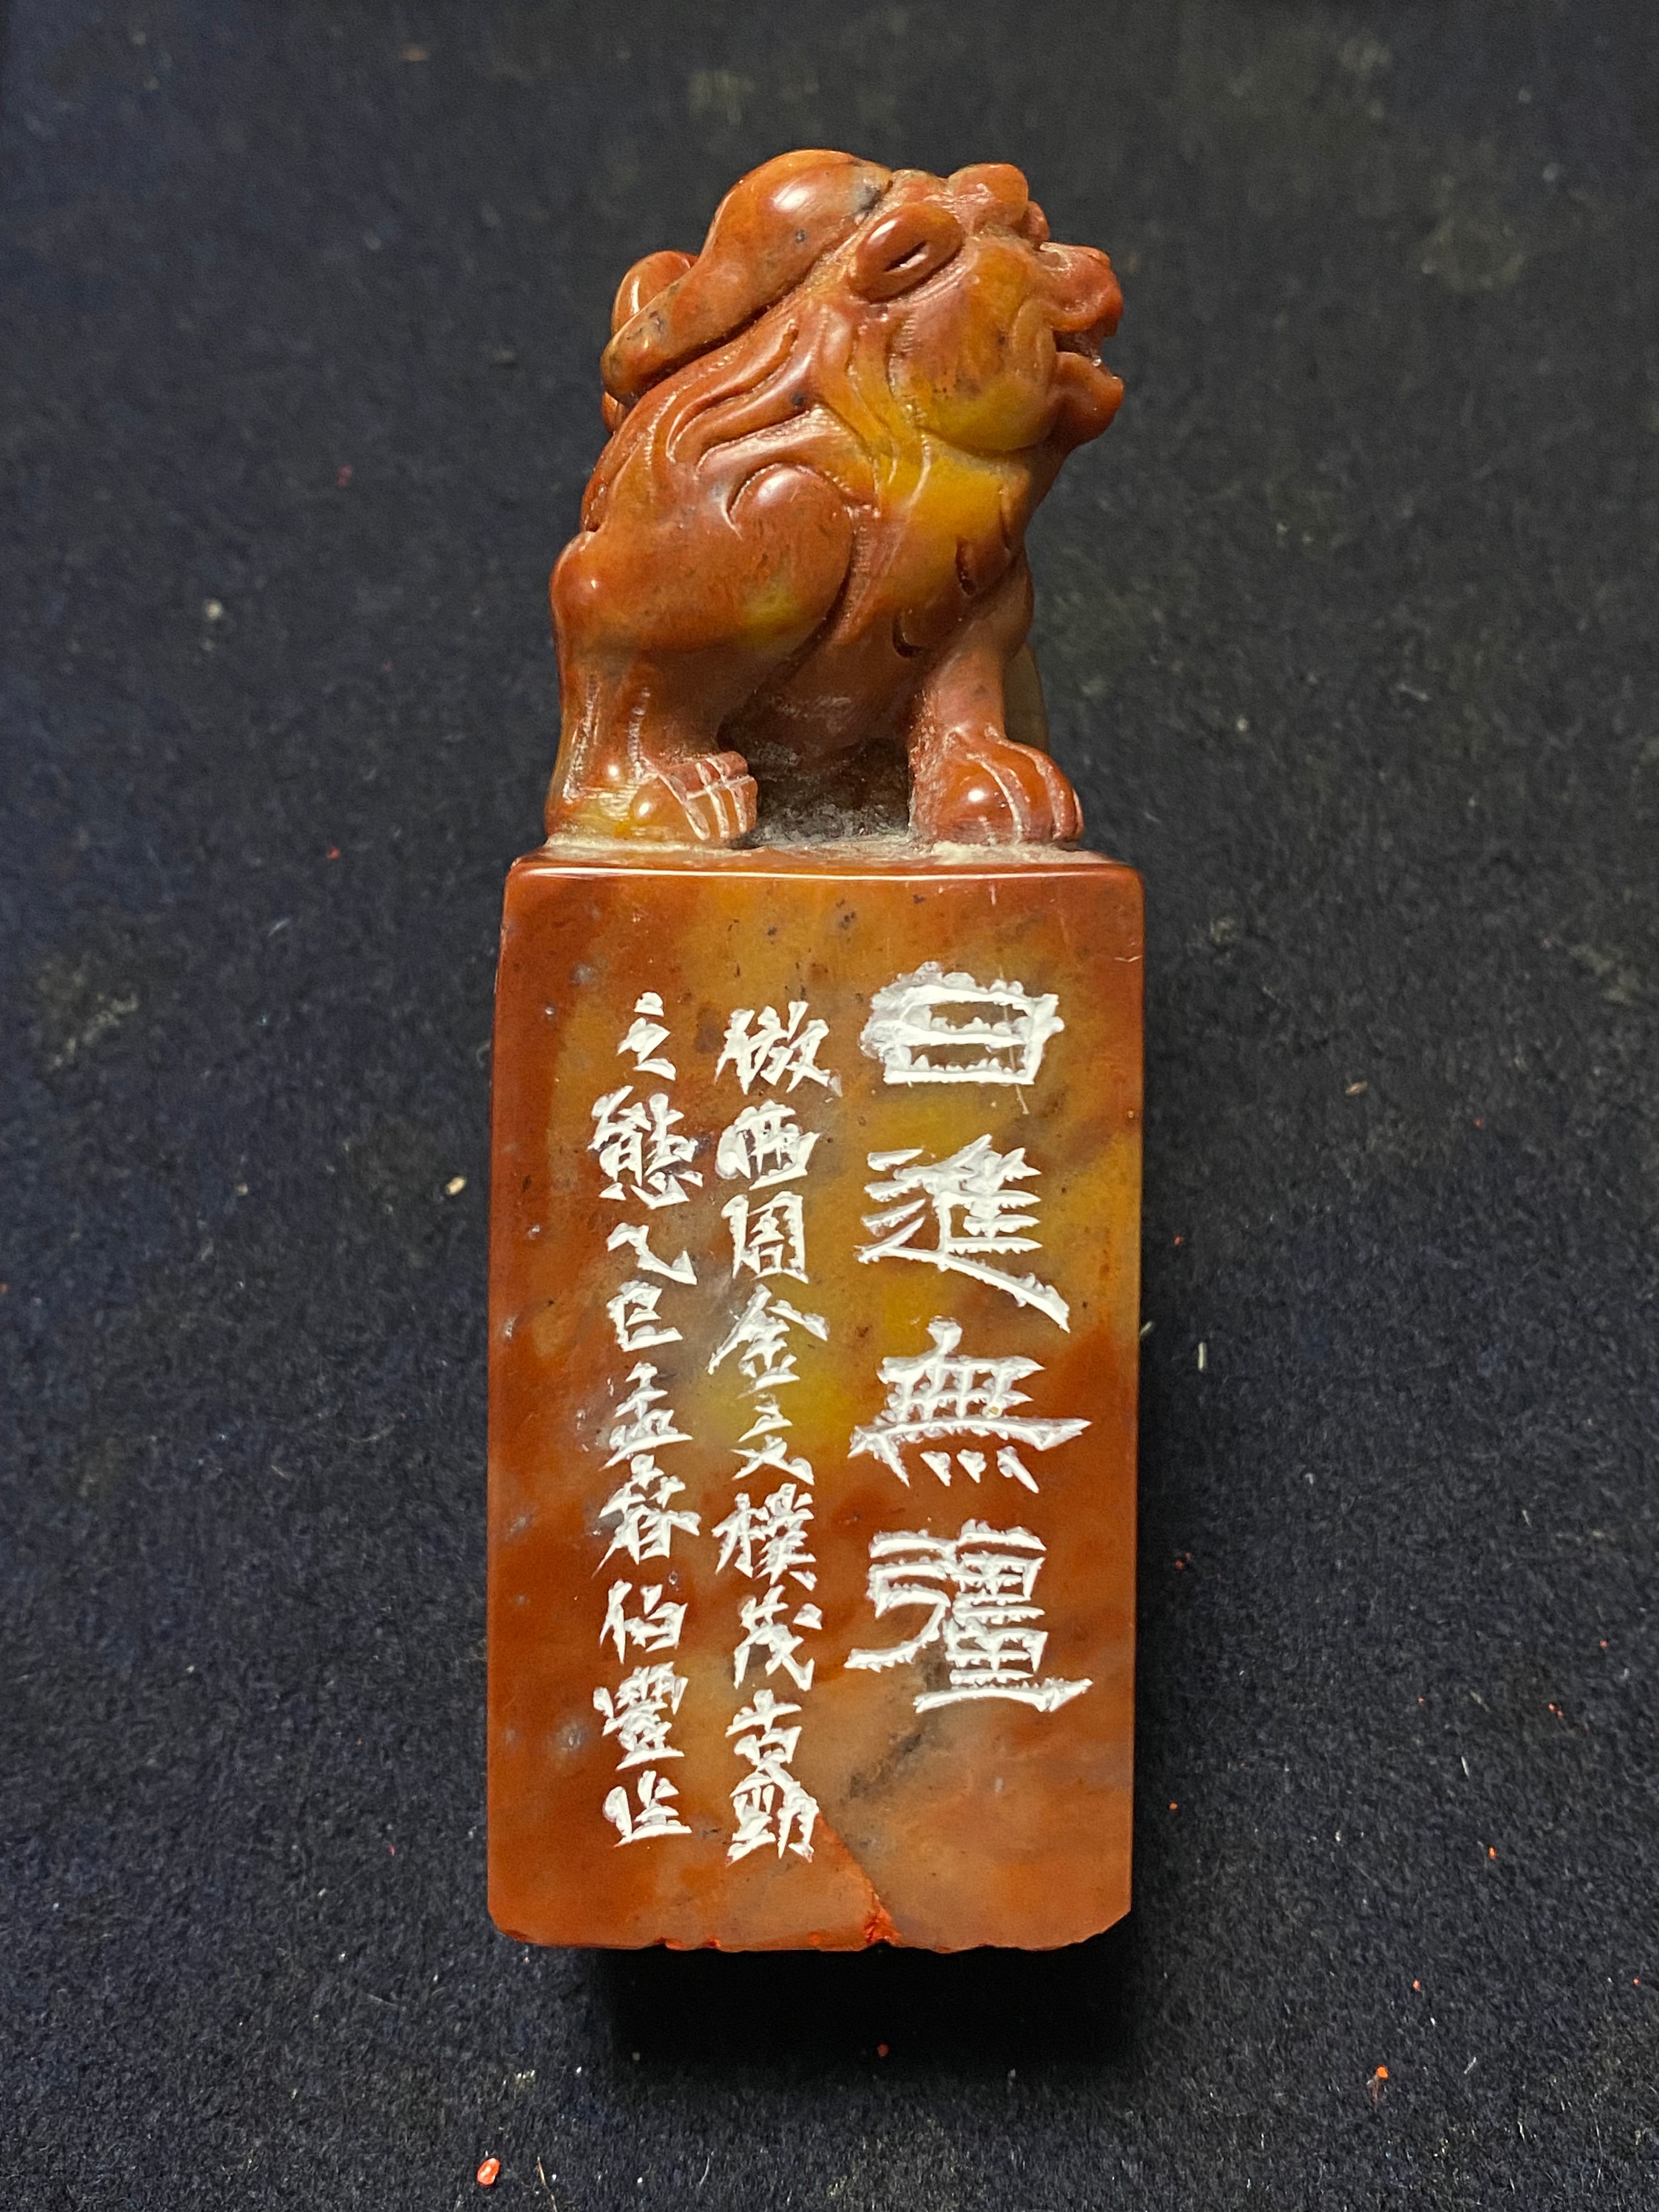 日進無疆
倣西周金文樸茂古勁
之態乙巳孟春伯豐作